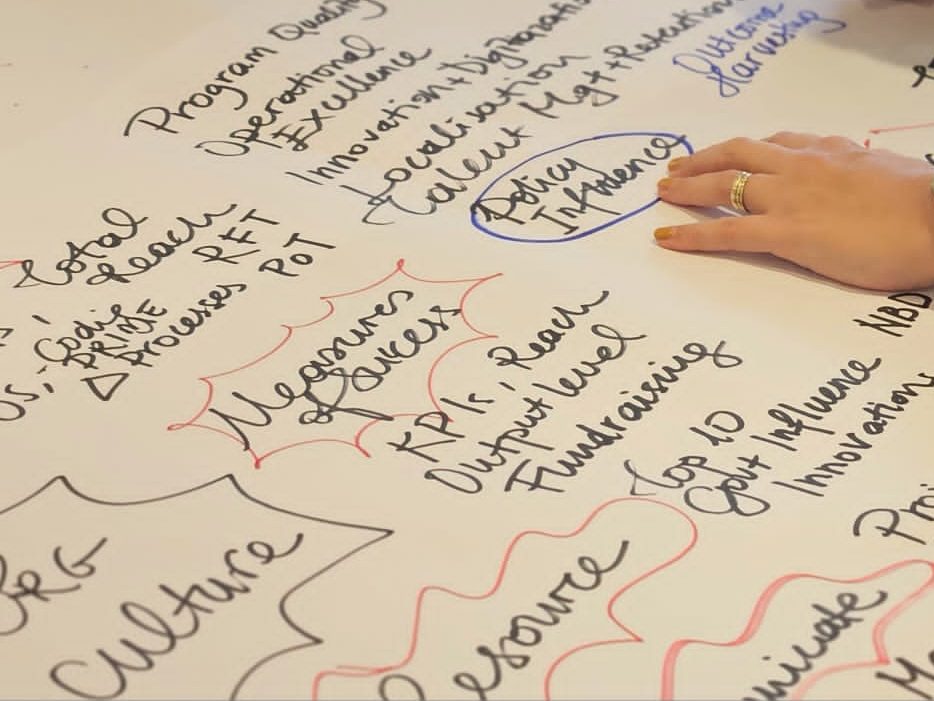 Program Quality
Operational
Excellence
Innovation + Digitization
Localisation
Talent Mgt + Retention
Outcome
Harvesting
Policy
Influence
Total
Reach
RFT
PRIME
Δ Processes PoT
Measures
of Success
KPIs, Reach
Output level
Fundraising
Top 10
Govt Influence
Innovations
NBD
ORG
Culture
Resource